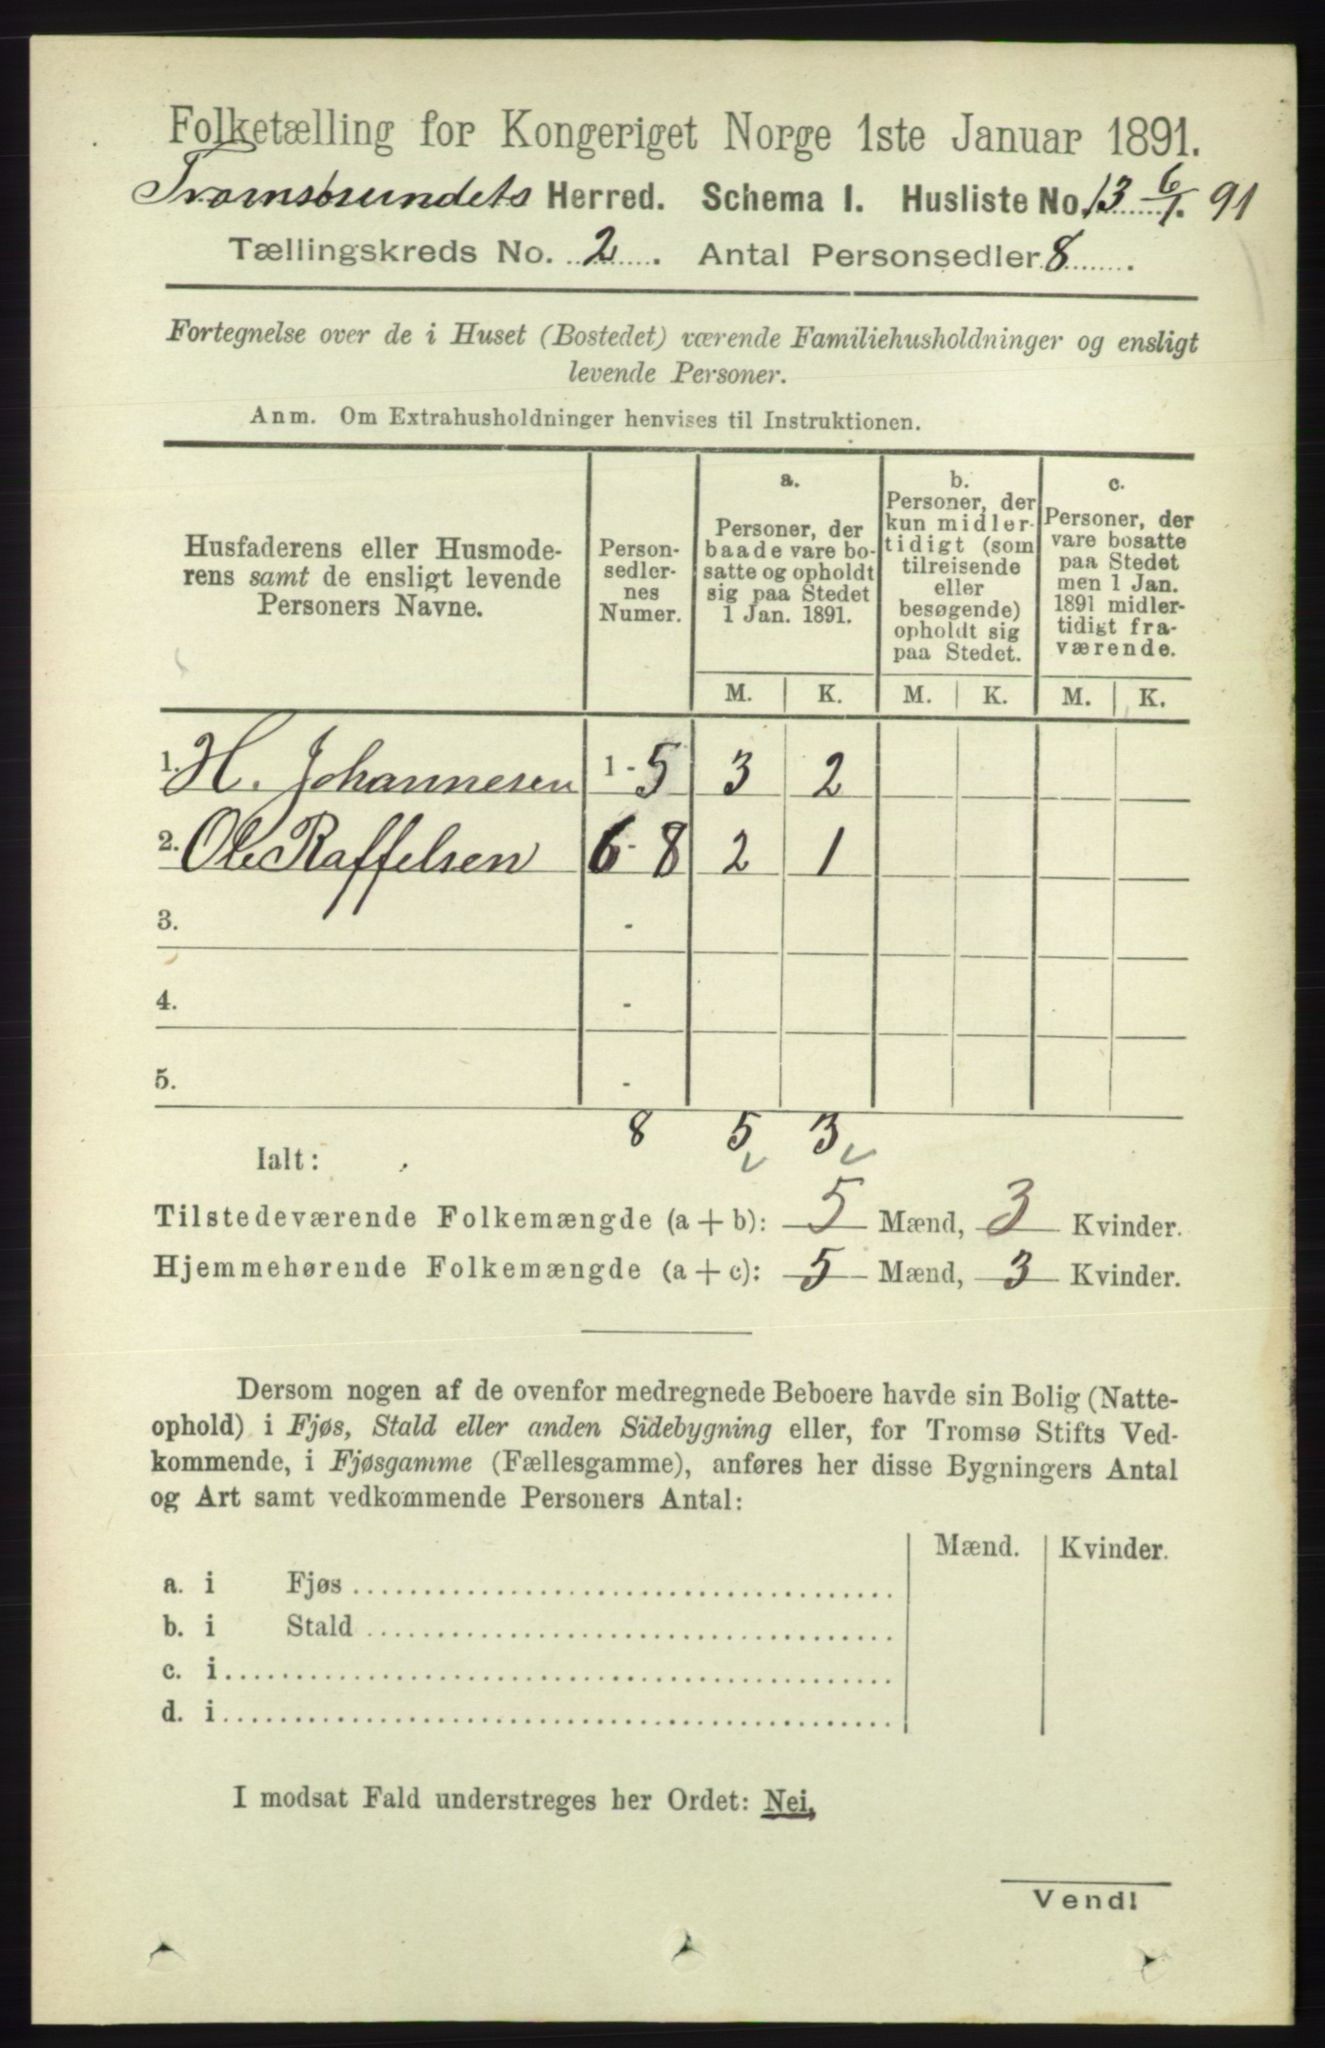 Folketælling for Kongeriget Norge 1ste Januar 1891.
Tromsøsundets Herred. Schema I. Husliste No. 13 6/1. 91
Tællingskreds No. 2. Antal Personsedler 8.
Fortegnelse over de i Huset (Bostedet) værende Familiehusholdninger og ensligt
levende Personer.
Anm. Om Extrahusholdninger henvises til Instruktionen.
Husfaderens eller Husmode-
rens samt de ensligt levende
Personers Navne.
Person-
sedler-
nes
Numer.
a.
Personer, der
baade vare bo-
satte og opholdt
sig paa Stedet
1 Jan. 1891.
b.
Personer, der
kun midler-
tidigt (som
tilreisende
eller
besøgende)
opholdt sig
paa Stedet.
c.
Personer, der
vare bosatte
paa Stedet
men 1 Jan.
1891 midler-
tidigt fra-
værende.
M. K. M. K. M. K.
1. H. Johannesen 1-5 3 2
2. Ole Raffelsen 6-8 2 1
3. -
4. -
5. -
8 5 3
Ialt:
Tilstedeværende Folkemængde (a + b): 5 Mænd, 3 Kvinder.
Hjemmehørende Folkemængde (a + c): 5 Mænd, 3 Kvinder.
Dersom nogen af de ovenfor medregnede Beboere havde sin Bolig (Natte-
ophold) i Fjøs, Stald eller anden Sidebygning eller, for Tromsø Stifts Ved-
kommende, i Fjøsgamme (Fællesgamme), anføres her disse Bygningers Antal
og Art samt vedkommende Personers Antal:
Mænd. Kvinder.
a. i Fjøs
b. i Stald
c. i
d. i
I modsat Fald understreges her Ordet: Nei.
Vend!